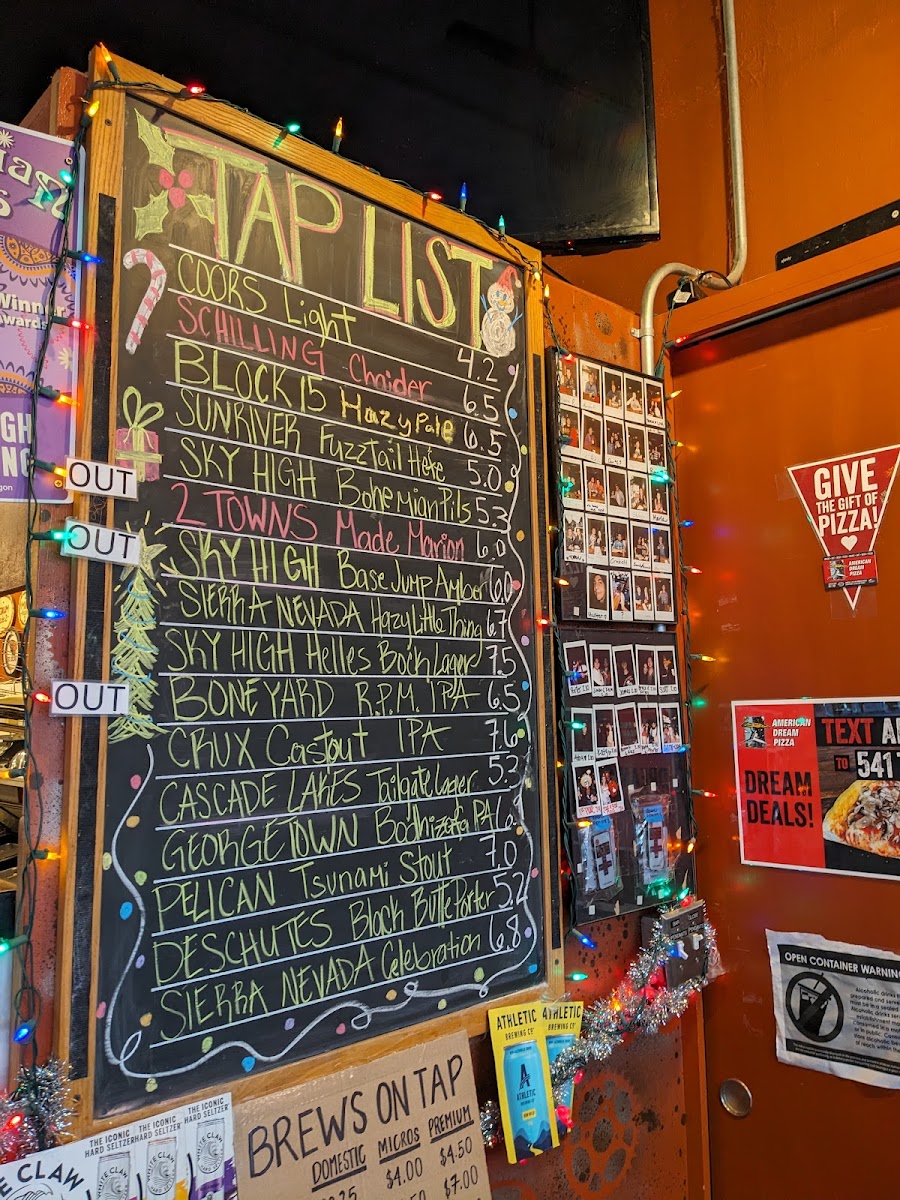 TAP LIST
COORS Light 4.2
SCHILLING Chaider 6.5
BLOCK 15 Hazy Pale 6.5
SUNRIVER FuzzTail Hefe 5.0
SKY HIGH Bohemian Pils 5.3
2 TOWNS Made Marion 6.0
SKY HIGH Base Jump Amber 6.0
SIERRA NEVADA Hazy Little Thing 6.7
SKY HIGH Helles Bock Lager 7.5
BONEYARD R.P.M. IPA 6.5
CRUX Castout IPA 7.6
CASCADE LAKES Tailgate Lager 5.3
GEORGETOWN Bodhizafa IPA 6.
PELICAN Tsunami Stout 7.0
DESCHUTES Black Butte Porter 5.2
SIERRA NEVADA Celebration 6.8
OUT
OUT
OUT
Winner
BREWS ON TAP
DOMESTIC MICROS PREMIUM
$4.00 $4.50
$7.00
THE ICONIC
HARD SELTZER
THE ICONIC
HARD SELTZER
THE ICONIC
HARD SELTZER
WHITE CLAW
CLAW
ATHLETIC
BREWING CO
ATHLETIC
BREWING CO.
ATHLETIC
GIVE
THE GIFT OF
PIZZA!
AMERICAN
DREAM
PIZZA
AMERICAN
DREAM
PIZZA
DREAM
DEALS!
TEXT
TO 541
OPEN CONTAINER WARNING